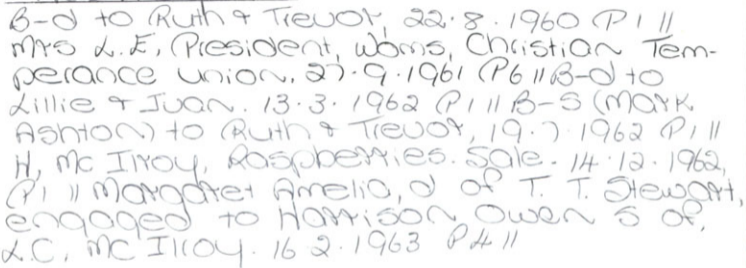 B-d to Ruth & Trevor, 22.8.1960 P1 //
Mrs L.E, President, Woms, Christian Tem-
perance Union. 27.9.1961 P6 // B-d to
Lillie & Ivan. 13.3.1962 P1 // B-S (Mark
Ashton) to Ruth & Trevor, 19.7.1962 P1 //
H, Mc Ilroy, Raspberries. Sale. 14.12.1962,
P1 // Margaret Amelia, d of T. T. Stewart,
engaged to Harrison Owen S of,
L.C, Mc Ilroy. 16 2.1963 P4 //